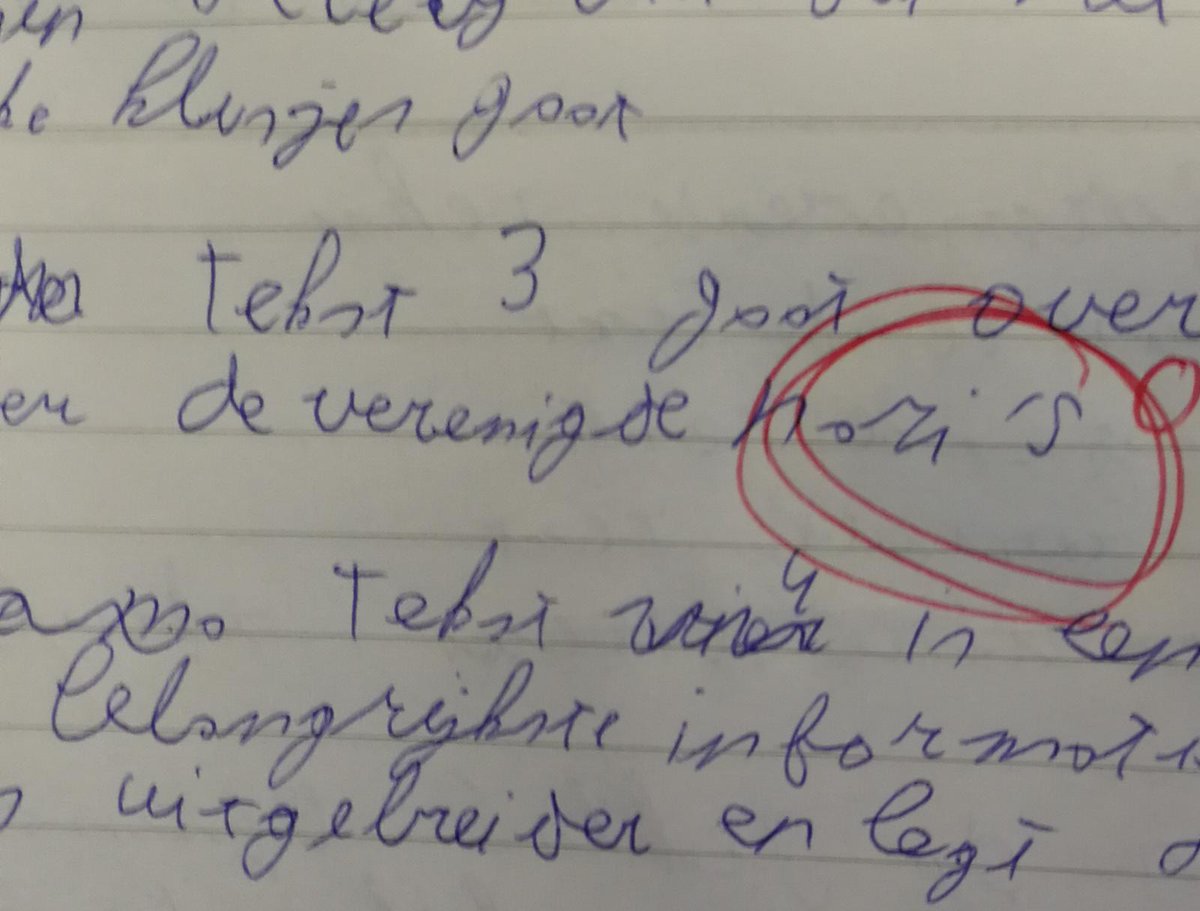 klusjes goot
tekst 3 goot over
de verenigde nozi 's
Tekst 4 in een
belangrijkste informati
uitgebreider en legt